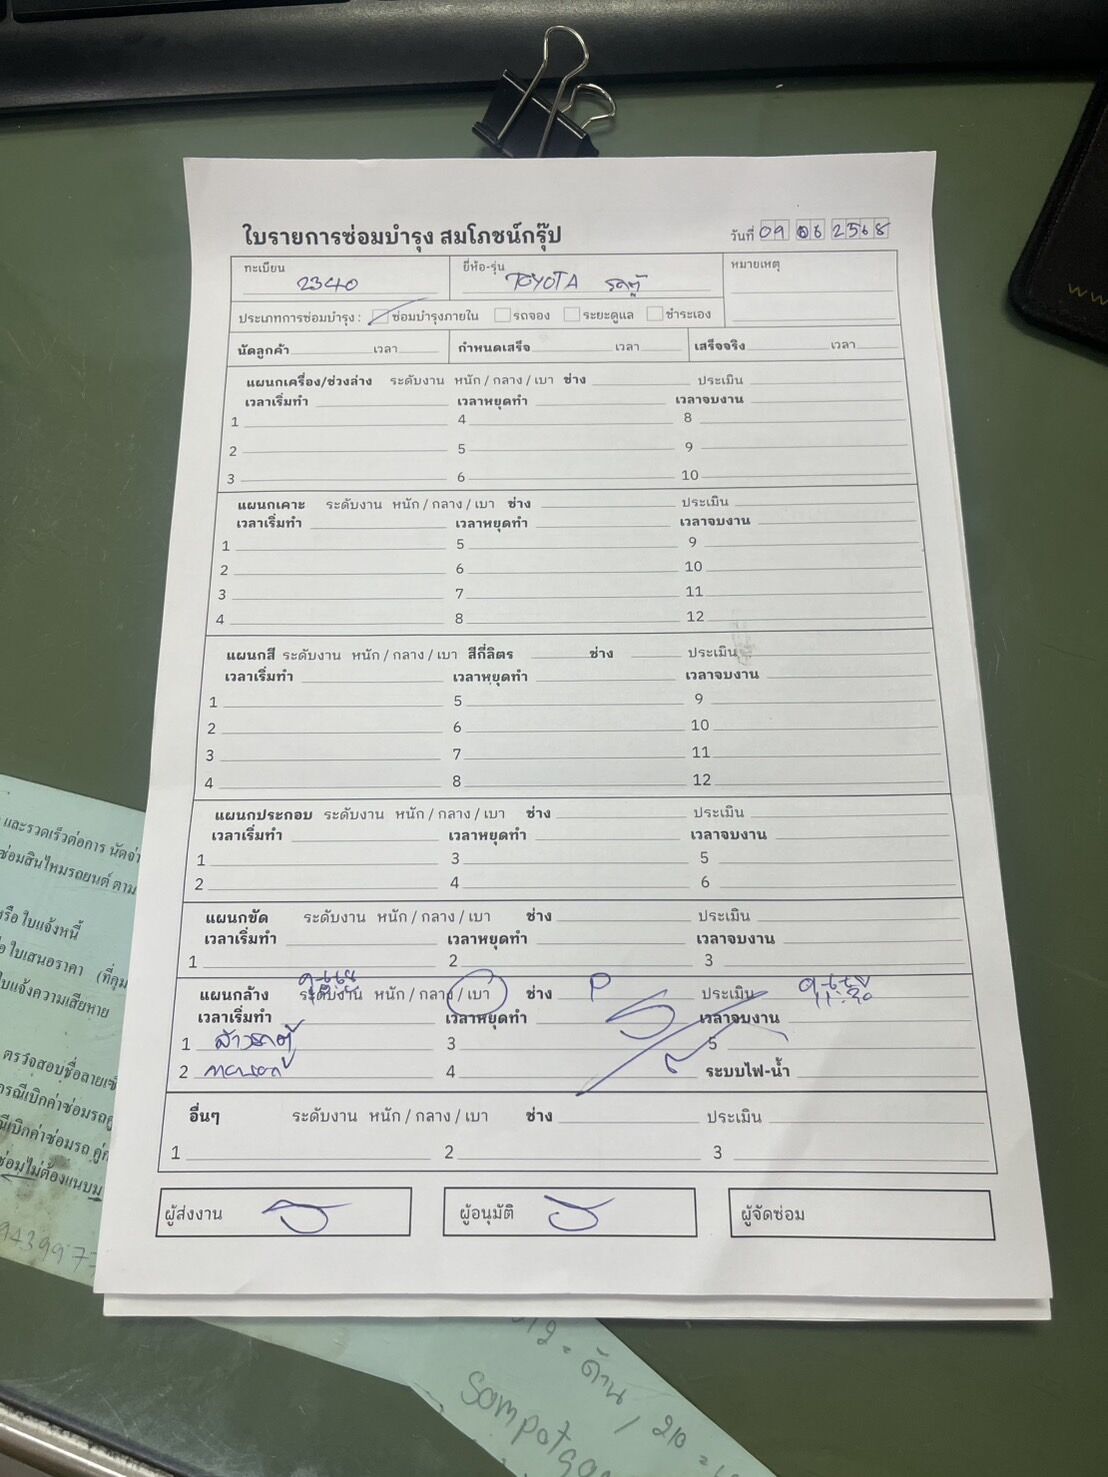 ใบรายการซ่อมบำรุง สมโภชน์กรุ๊ป
วันที่ 09 06 2568
ทะเบียน 2340 ยี่ห้อ-รุ่น TOYOTA รถตู้ หมายเหตุ
ประเภทการซ่อมบำรุง : ซ่อมบำรุงภายใน รถจอง ระยะดูแล ชำระเอง
นัดลูกค้า เวลา กำหนดเสร็จ เวลา เสร็จจริง เวลา
แผนกเครื่อง/ช่วงล่าง ระดับงาน หนัก / กลาง / เบา ช่าง ประเมิน
เวลาเริ่มทำ เวลาหยุดทำ เวลาจบงาน
1 4 8
2 5 9
3 6 10
แผนกเคาะ ระดับงาน หนัก / กลาง / เบา ช่าง ประเมิน
เวลาเริ่มทำ เวลาหยุดทำ เวลาจบงาน
1 5 9
2 6 10
3 7 11
4 8 12
แผนกสี ระดับงาน หนัก / กลาง / เบา สีกี่ลิตร ช่าง ประเมิน
เวลาเริ่มทำ เวลาหยุดทำ เวลาจบงาน
1 5 9
2 6 10
3 7 11
4 8 12
แผนกประกอบ ระดับงาน หนัก / กลาง / เบา ช่าง ประเมิน
เวลาเริ่มทำ เวลาหยุดทำ เวลาจบงาน
1 3 5
2 4 6
แผนกขัด ระดับงาน หนัก / กลาง / เบา ช่าง ประเมิน
เวลาเริ่มทำ เวลาหยุดทำ เวลาจบงาน
1 2 3
แผนกล้าง ระดับงาน หนัก / กลาง / เบา ช่าง P ประเมิน
เวลาเริ่มทำ เวลาหยุดทำ เวลาจบงาน
1 ล้างรถตู้ 3 5
2 4 ระบบไฟ-น้ำ
อื่นๆ ระดับงาน หนัก / กลาง / เบา ช่าง ประเมิน
1 2 3
ผู้ส่งงาน ผู้อนุมัติ ผู้จัดซ่อม
และรวดเร็วต่อการ นัดจ่า
ซ่อมสินไหมรถยนต์ ตาม
รือ ใบแจ้งหนี้
ใบเสนอราคา (ที่คุม
ใบแจ้งความเสียหาย
ตรวจสอบชื่อลายเซ็
กรณีเบิกค่าซ่อมรถคู่
ณีเบิกค่าซ่อมรถ คู่ก
ซ่อมไม่ต้องแนบม